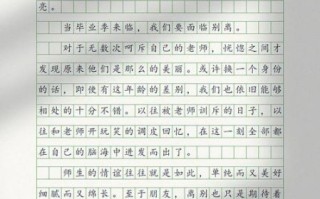 亮。
当毕业季来临，我们要面临别离。
对于无数次呵斥自己的老师，恍惚之间才
发现原来他们是那么的美丽。或许换一个身份
的话，即使有这年龄的差别，我们也依旧能够
相处的十分不错。以往被老师训斥的日子，以
往和老师开玩笑的调皮回忆，在这一刻全部都
在自己的脑海中迸发而出了。
师生的情谊往往就是如此，单纯而又美好
细腻而又绵长。至于朋友，离别也只是期待着